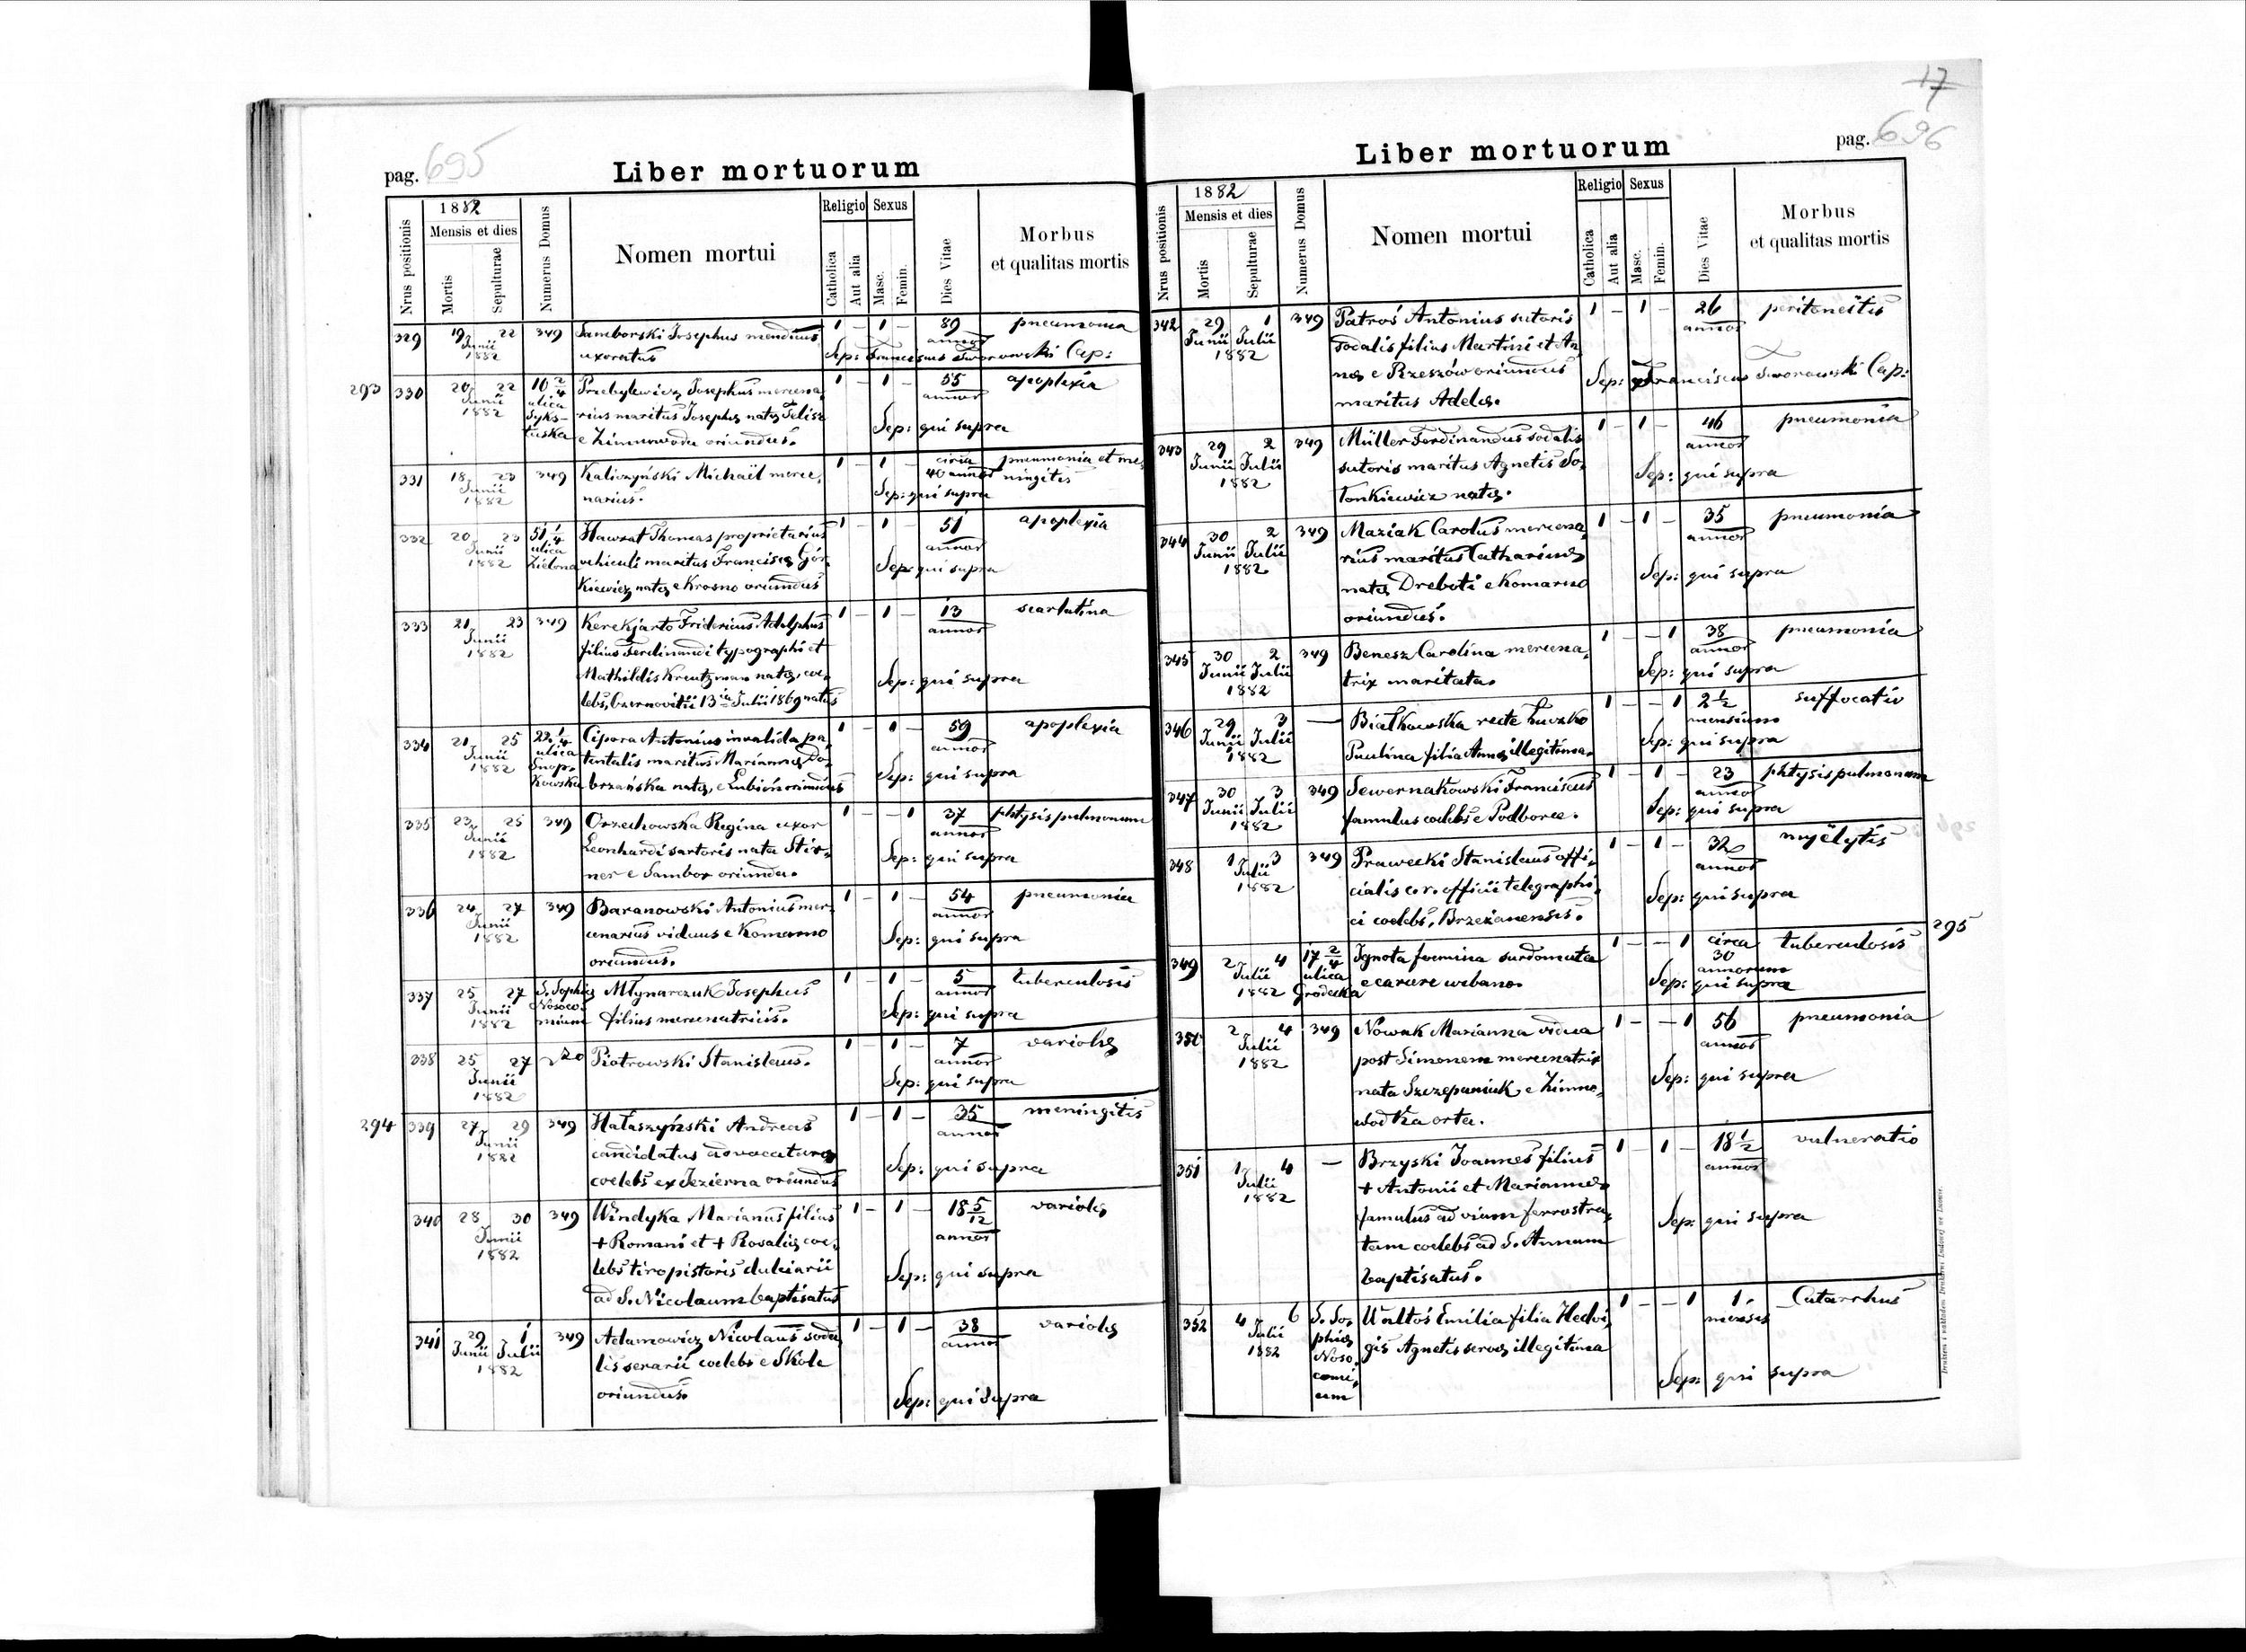 pag. 695
Liber mortuorum
Nrus positionis
1882
Mensis et dies
Mortis
Sepulturae
Numerus Domus
Nomen mortui
Religio
Catholica
Aut alia
Sexus
Masc.
Femin.
Dies Vitae
Morbus
et qualitas mortis
329 19 22 349 Samborski Josephus mendicus 1 – 1 – 89 pneumonia
Junii uxoratus annor
1882 Sep: Franciscus Tworowski Cap:
293 330 20 22 10 2/4 Przebylewicz Josephus mercena, 1 – 1 – 55 apoplexia
Junii ulica rius maritus Josephæ natæ Felisz annor
1882 Syks- e Zimnowoda oriundus. Sep: qui supra
tuska
331 18 23 349 Kaliczyński Michaël merce, 1 – 1 – circa pneumonia et me,
Junii narius. 40 annor ningitis
1882 Sep: qui supra
332 20 23 51 1/4 Hawrat Thomas proprietarius 1 – 1 – 51 apoplexia
Junii ulica vehiculi maritus Franciscæ Gór, annor
1882 Zielona kiewicz natæ e Krosno oriundus Sep: qui supra
333 21 23 349 Kerekjarto Fridericus Adolphus 1 – 1 – 13 scarlatina
Junii filius Ferdinandi typographi et annor
1882 Mathildis Kreutzman natæ, coe, Sep: qui supra
lebs, Czernovitii 13 ia Julii 1869 natus
334 21 25 22 1/4 Cipora Antonius invalida pa, 1 – 1 – 59 apoplexia
Junii ulica tentalis maritus Mariannæ Do, annor
1882 Snop- brzańska natæ, e Lubień oriundus Sep: qui supra
kowska
335 23 25 349 Orzechowska Regina uxor 1 – – 1 37 phtysis pulmonum
Junii Leonhardi sartoris nata Stir, annor
1882 ner e Sambor oriunda. Sep: qui supra
336 24 27 349 Baranowski Antonius mer, 1 – 1 – 54 pneumonia
Junii cenarius viduus e Komarno annor
1882 oriundus. Sep: qui supra
337 25 27 S. Sophiæ Młynarczuk Josephus 1 – 1 – 5 tuberculosis
Junii Nosoco- filius mercenatricis. annor
1882 mium Sep: qui supra
338 25 27 Piotrowski Stanislaus. 1 – 1 – 7 variolæ
Junii annor
1882 Sep: qui supra
294 339 27 29 349 Hałaszyński Andreas 1 – 1 – 35 meningitis
Junii candidatus advocaturæ annor
1882 coelebs ex Jezierna oriundus Sep: qui supra
340 28 30 349 Windyka Marianus filius 1 – 1 – 18 5/12 variolæ
Junii + Romani et + Rosaliæ coe, annor
1882 lebs tiro pistoris dulciarii Sep: qui supra
ad S. Nicolaum baptisatus
341 29 1 349 Adamowicz Nicolaus soda, 1 – 1 – 38 variolæ
Junii Julii lis serarii coelebs e Skole annor
1882 oriundus. Sep: qui supra
17
pag. 696
Liber mortuorum
Nrus positionis
1882
Mensis et dies
Mortis
Sepulturae
Numerus Domus
Nomen mortui
Religio
Catholica
Aut alia
Sexus
Masc.
Femin.
Dies Vitae
Morbus
et qualitas mortis
342 29 1 349 Patroś Antonius sutoris 1 – 1 – 26 peritoneitis
Junii Julii sodalis filius Martini et An, annor
1882 næ e Rzeszów oriundus Sep: Franciscus Tworowski Cap:
maritus Adelæ.
343 29 2 349 Müller Ferdinandus sodalis 1 – 1 – 46 pneumonia
Junii Julii sutoris maritus Agnetis So, annor
1882 tonkiewicz natæ. Sep: qui supra
344 30 2 349 Maziak Carolus mercena, 1 – 1 – 35 pneumonia
Junii Julii rius maritus Catharinæ annor
1882 natæ Dreboti e Komarno Sep: qui supra
oriundus.
345 30 2 349 Benesz Carolina mercena, 1 – – 1 38 pneumonia
Junii Julii trix maritata. annor
1882 Sep: qui supra
346 29 3 — Białkowska recte Łuczko 1 – – 1 2 1/2 suffocatio
Junii Julii Paulina filia Annæ illegitima. mensium
1882 Sep: qui supra
347 30 3 349 Sewernakowski Franciscus 1 – 1 – 23 phtysis pulmonum
Junii Julii famulus coelebs e Podborce. annor
1882 Sep: qui supra
348 1 3 349 Prawecki Stanislaus offi, 1 – 1 – 32 myëlytis
Julii cialis c. r. officii telegraphi, annor
1882 ci coelebs, Brzeżanensis. Sep: qui supra
349 2 4 17 2/4 Ignota foemina surdomuta 1 – – 1 circa tuberculosis 295
Julii ulica e carcere urbano. 30
1882 Grodecka annorum
Sep: qui supra
350 2 4 349 Nowak Marianna vidua 1 – – 1 56 pneumonia
Julii post Simonem mercenatrix annor
1882 nata Szczepaniuk e Zimno, Sep: qui supra
wodka orta.
351 1 4 — Brzyski Joannes filius 1 – 1 – 18 1/2 vulneratio
Julii + Antonii et Mariannæ annor
1882 famulus ad viam ferrostra, Sep: qui supra
tam coelebs ad S. Annam
baptisatus.
352 4 6 S. So, Waltoś Emilia filia Hedvi, 1 – – 1 1 Catarrhus
Julii phiæ gis Agnetis servæ illegitima mensis
1882 Noso, Sep: qui supra
comi,
um
Drukiem i nakładem Drukarni Ludowej we Lwowie.